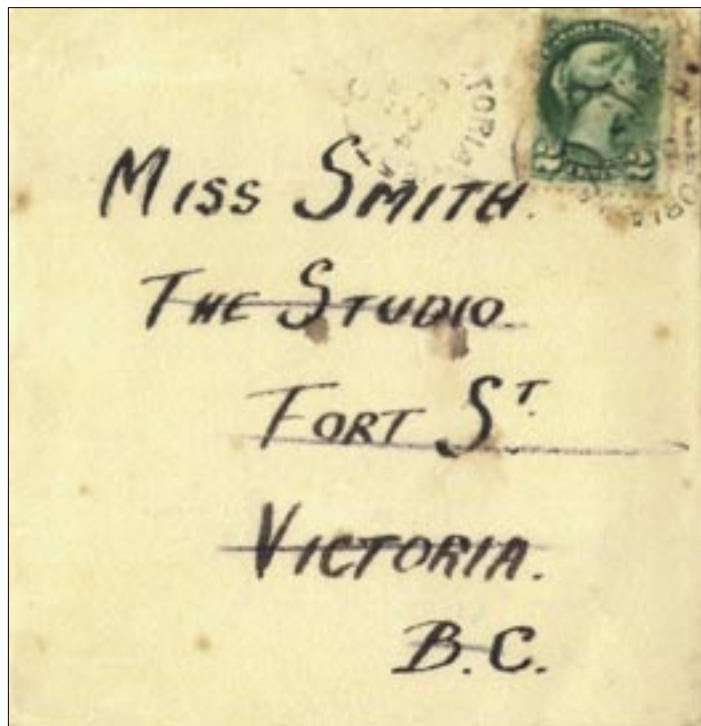 MISS SMITH.
THE STUDIO.
FORT ST.
VICTORIA.
B.C.
2 2
TORIA